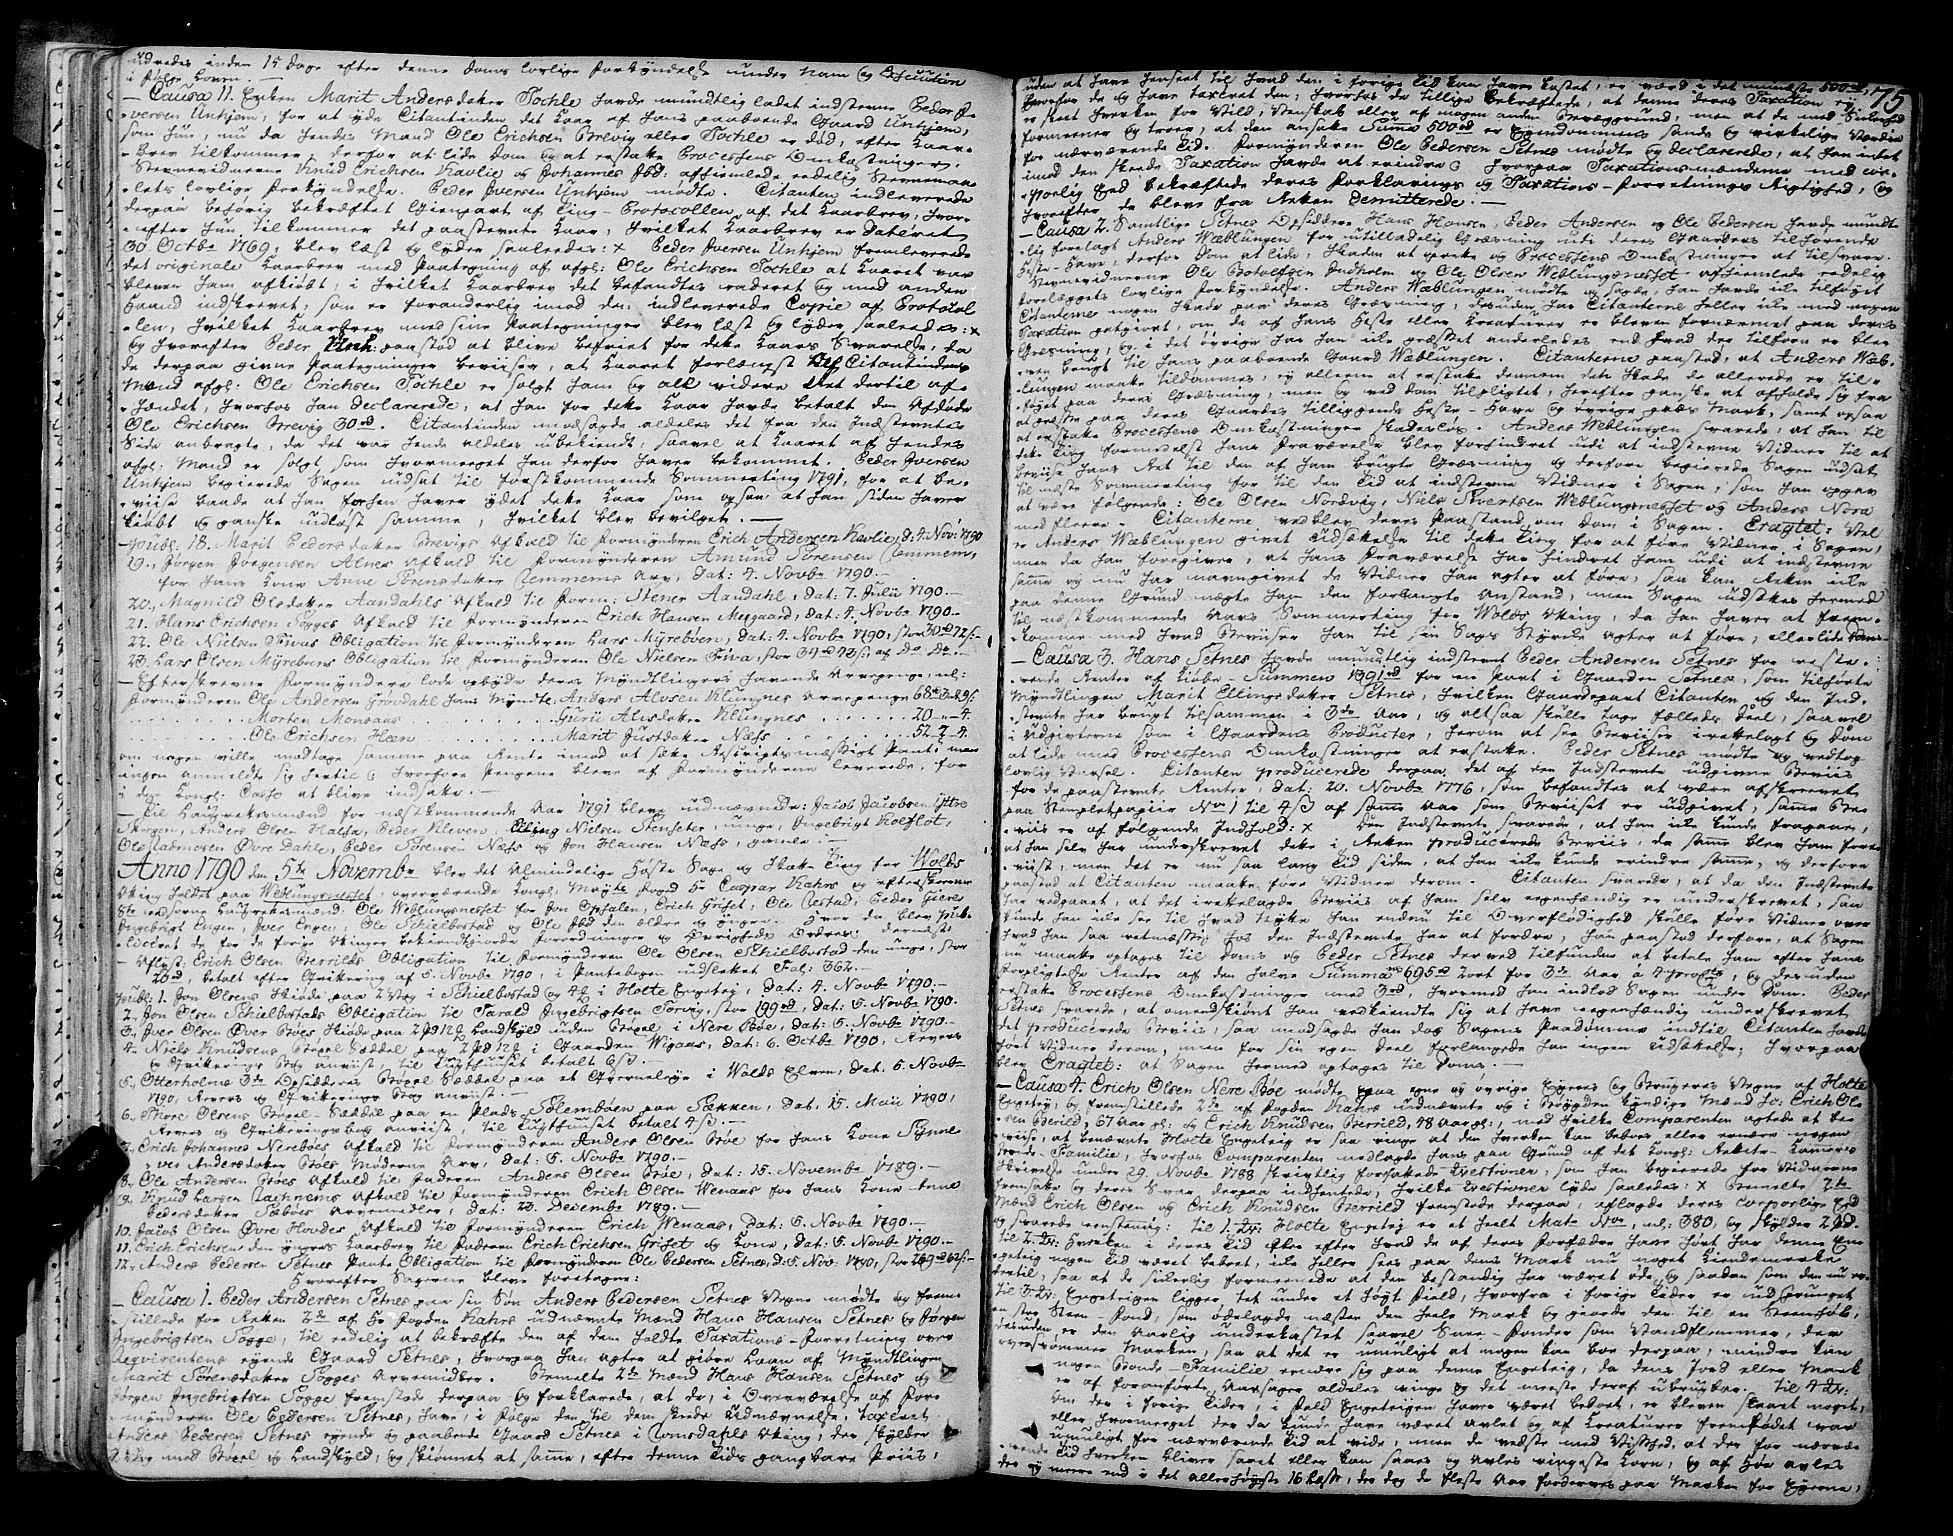 udredes inden 15 Dage efter denne Doms lovlige Forkyndelse under Nam og Execution
i Følge Loven. —
— Causa 11. Enken Marit Andersdatter Tochle havde mundtlig ladet indstevne Peder J-
versen Unhjem, for at yde Citantinden det Kaar af hans paaboende Gaard Unhjem,
som hun, nu da hendes Mand Ole Erichsen Brevig eller Tochle er død, efter Kaar-
brev tilkommer, derfor at lide Dom og at erstatte Processens Omkostninger.
Stevnevidnerne Knud Erichsen Kavlie og Johannes ibd: afhiemlede edelig Stevnemaa-
lets lovlige Forkyndelse. Peder Jversen Unhjem mødte. Citanten indleverede
derpaa behørig bekræftet Gienpart af Ting-Protocollen af det Kaarbrev, hvor-
efter hun tilkommer det paastevnte Kaar, hvilket Kaarbrev er dateret
30. Octbr 1769, blev læst og lyder saaledes: x Peder Jversen Unhjem fremleverede
det originale Kaarbrev med Paategning af afgl: Ole Erichsen Tochle at Kaaret var
bleven ham afkiøbt, i hvilket Kaarbrev det befandtes raderet og med anden
Haand indskrevet, som er foranderlig imod den indleverede Copie af Protocol-
len, hvilket Kaarbrev med sine Paategninger blev læst og lyder saaledes: x
og hvorefter Peder Unh: paastod at blive befriet for dette Kaars Svarelse, da
de derpaa givne Paategninger beviiser, at Kaaret forlængst af Citantindens
Mand afgl: Ole Erichsen Tochle er solgt ham og all videre Ret dertil af-
hændet, hvorhos han declarerede, at han for dette Kaar havde betalt den Afdøde
Ole Erichsen Brevig 30 rd. Citantinden modsagde aldeles det fra den Indstevntes
Side anbragte, da det var hende aldeles ubekiendt, saavel at Kaaret af hendes
afgl: Mand er solgt, som hvormeget han derfor haver bekommet. Peder Jversen
Unhjem begierede Sagen udsat til forstkommende Sommerting 1791, for at be-
viise baade at han forhen haver ydet dette Kaar som ogsaa at han siden haver
kiøbt og ganske udløst samme, hvilket blev bevilget. —
publ: 18. Marit Pedersdatter Brevigs Afkald til Formynderen Erich Andersen Kavlie, d. 4. Nov: 1790
19., Jørgen Jørgensen Alnes Afkald til Formynderen Amund Sørensen Remmem,
for hans Kone Anne Sørensdatter Remmems Arv, dat: 4. Novbr 1790. —
20., Magnild Olsdatter Aandahls Afkald til Form: Stener Aandahl, dat: 7. Julii 1790. —
21. Hans Erichsen Sogges Afkald til Formynderen Erich Hansen Mesgaard, dat: 4. Novbr 1790. —
22. Ole Nielsen Tivas Obligation til Formynderen Lars Myrebøen, dat: 4. Novbr 1790, stor 30 rd 72 s. —
23. Lars Olsen Myrebøens Obligation til Formynderen Ole Nielsen Tiva, stor 34 rd 43 s. af do do. —
— Efterskrevne Formyndere lode opbyde deres Myndlingers havende Arvepenge, nl:
Formynderen Ole Andersen Grövdahl hans Myndte Anders Alvsen Klungnes Arvepenge 68
Morten Monsaas . . . Gurii Alvsdatter Klungnes . . . 20 „ 4.
Ole Erichsen Hoen . . . Marit Justdatter Næss . . . 52. 2. 4.
om nogen ville modtage samme paa Rente imod at sætte Reskriptsmæssigt Pant; men
ingen anmeldte sig hertil hvorfore Pengene bleve af Formynderne leverede, for
i den Kongl: Casse at blive indsatte. —
— Til Laugrettesmænd for næstkommende Aar 1791 bleve udnævnede: Jacob Jacobsen Yttre
Skorgen, Anders Olsen Halsa, Peder Kleven, Elling Nielsen Stenseter, unge, Ingebrigt Kolflot,
Ole Rasmussen Øvre Dahle, Peder Sørensen Næss og Jon Hansen Næss, gamle. —
Anno 1790 den 5te Novembr blev det Almindelige Høste Sage og Skatte Ting for Wolds
Otting holdet paa Weblungsnesset, overværende Kongl: Mayts Foged Hr Caspar Kahrs og efterskrevne
8te edsorne Laugrettesmænd, Ole Weblungsnesset for Jon Opsalen, Erich Griset, Ole Restad, Peder Giere,
Ingebrigt Engen, Jver Engen, Ole Schielbostad og Ole ibd den ældre og yngere. Hvor da blev pub-
liceret de for de forige Ottinger bekiendtgiorte Forordninger og Øvrigheds Ordrer; dernæst
— Aflyst: Erich Olsen Berrilds Obligation til Formynderen Ole Olsen Schielbostad den unge, stor
20 rd, betalt efter Qvittering af 5. Novbr 1790, i Pantebogen udslettet Fol: 362. —
publ: 1. Jon Olsens Skiøde paa 2 Vog i Schielbostad og i Holte Engetei, dat: 4. Novbr 1790. —
2. Jon Olsen Schielbostads Obligation til Harald Ingebrigtsen Torvig, stor 199 rd, dat: 5. Novbr 1790.
3., Jver Olsen Øver Böes Skiøde paa Landskyld uden Bøxel i Nere Böe, dat: 5. Novbr 1790. —
4. Niels Knudsens Bøxel Seddel paa i Gaarden Wigaas, dat: 6. Octbr 1790, Revers
og Qvitterings Bog anviist. Til Tugthuuset betalt 6 s. —
5., Otterholms 3de Opsidderes Bøxel Seddel paa et Qverneleye i Wolds Elven, dat: 5. Novbr
1790, Revers og Qvitterings Bog anviist. —
6. Thore Olsens Bøxel-Seddel paa en Plads Solembøen paa Sækken, dat: 15. Maii 1790,
Revers og Qvitteringsbog anviist. Til Tugthuuset betalt 4 s. —
7. Erich Johannes Nereböes Afkald til Formynderen Anders Olsen Böe for hans Kone Synne-
ves Andersdatter Böes Møderne Arv, dat: 5. Novbr 1790. —
8. Ole Andersen Böes Afkald til Faderen Anders Olsen Böe, dat: 15. Novembr 1789. —
9. Knud Larsen Rachnems Afkald til Formynderen Erich Olsen Wenaas for hans Kone Anne
Pedersdatter Sæböes Arvemidler, dat: 20. Decembr 1789. —
10. Jacob Olsen Øvre Hovdes Afkald til Formynderen Erich Wenaas, dat: 5. Novbr 1790. —
11. Erich Erichsen den yngres Kaarbrev til Faderen Erich Erichsen Griset og Kone, dat: 5. Novbr 1790. —
12., Anders Pedersen Setnes Pante Obligation til Formynderen Ole Pedersen Setnes, d: 5. Nov: 1790, stor 269 rd 62 s. —
Hvorefter Sagerne bleve foretagne:
— Causa 1. Peder Andersen Setnes paa sin Søn Anders Pedersen Setnes Vegne mødte og frem-
stillede for Retten 2de af Hr Fogden Kahrs udnævnte Mænd Hans Hansen Setnes og Jørgen
Ingebrigtsen Sogge, til edelig at bekræfte den af dem holdte Taxations-Forretning over
Reqvirentens eyende Gaard Setnes, hvorpaa han agter at giøre Laan af Myndlingen
Marit Sørensdatter Sogges Arvemidler. Bemelte 2de Mænd Hans Hansen Setnes og
Jørgen Ingebrigtsen Sogge fremstode derpaa og forklarede, at de, i Overværelse af For-
mynderen Ole Pedersen Setnes, have, i Følge den til dem skeede Udnævnelse, taxeret
Anders Pedersen Setnes eyende og paaboende Gaard Setnes i Romsdahls Otting, der skylder
2 Vog med Bøxel og Landskyld, og skiønnet at samme, efter denne Tids gangbare Priis,
75
uden at have henseet til hvad den i forige Tid kan have kostet, er værd i det mindste 500 rd,
hvorfor de og have taxeret den, hvorhos de tillige bekræftede, at denne deres Taxation ey
er skeet hverken for Vild, Venskab eller af nogen anden Bevæggrund, men at de med Sikkerhed
formeener og troer, at den ansatte Summa 500 rd er Eyendommens sande og virkelige Værdie
for nærværende Tid. Formynderen Ole Pedersen Setnes mødte og declarerede, at han intet
imod den skeede Taxation havde at erindre; hvorpaa Taxationsmændene med cor-
porlig Eed bekræftede deres Forklarings og Taxations-Forretnings Rigtighed, og
hvorefter de bleve fra Retten demitterede. —
— Causa 2. Samtlige Setnes Opsiddere Hans Hansen, Peder Andersen og Ole Pedersen havde mundt-
lig forelagt Anders Wæblungen for utilladelig Græsning udi deres Gaardens tilhørende
Heste-Have, derfor Dom at lide, Skaden at oprette og Processens Omkostninger at tilsvare.
Stevnevidnerne Ole Botolfsen Indholm og Ole Olsen Weblungsnesset afhiemlede edelig
Forelæggets lovlige Forkyndelse. Anders Wæblungen mødte og sagde, han havde ikke tilføyet
Citanterne nogen Skade paa deres Græsning, desuden har Citanterne heller ikke med nogen
Taxation gotgiort, om de af hans Heste eller Kreaturer er bleven fornærmet paa deres
Græsning, og i det øvrige har han ikke græsset anderledes end hvad der tilforn er ble-
ven brugt til hans paaboende Gaard Wæblungen. Citanterne paastod, at Anders Wæb-
lungen maatte tildømmes, ey alleene at erstatte dennem den Skade de allerede er til-
føyet paa deres Græsning, men og ved Dom tilpligtet, herefter ganske at afholde sig fra
at græsse paa deres Gaardes tilliggende Heste-Have og øvrige Græs Mark, samt ogsaa
at erstatte Processens Omkostninger skadesløs. Anders Weblungen svarede, at han til
dette Ting formedelst hans Fraværelse blev forhindret udi at indstevne Vidner til at
beviise hans Ret til den af ham brugte Græsning og derfore begierede Sagen udsat
til næste Sommerting for til den Tid at indstevne Vidner i Sagen, som han opgav
at være følgende: Ole Olsen Nordvig, Niels Sivertsen Weblungsnesset og Anders Nora
med fleere. Citanterne vedblev deres Paastand om Dom i Sagen. Eragtet: Vel
er Anders Wæblungen givet Udsættelse til dette Ting for at føre Vidner i Sagen,
men da han foregiver, at hans Fraværelse har hindret ham udi at indstevne
samme og nu har navngivet de Vidner han agter at føre, saa kan Retten ikke
paa denne Grund nægte ham den forlangte Anstand, men Sagen udsættes hermed
til næstkommende Aars Sommerting for Wolds Otting, da han haver at frem-
komme med hvad Beviiser han til sin Sags Styrke agter at føre, eller lide Dom.
— Causa 3. Hans Setnes havde mundtlig indstevnt Peder Andersen Setnes for reste-
rende Renter af Kiøbe-Summen 1391 rd for en Part i Gaarden Setnes, som tilhørte
Myndlingen Marit Ellingsdatter Setnes, hvilken Gaardepart Citanten og den Ind-
stevnte har brugt tilsammen i 3de Aar, og altsaa skulle tage fælleds Deel, saavel
i Udgivterne som i Gaardens Producter, herom at see Beviiser irettelagt og Dom
at lide med Processens Omkostninger at erstatte. Peder Setnes mødte og vedtog
lovlig Varsel. Citanten producerede derpaa det af den Indstevnte udgivne Beviis
for de paastevnte Renter, dat: 20. Novbr 1776, som befandtes at være afskrevet
paa Stemplet Papiir No 1 til 4 s af samme Aar som Beviiset er udgivet, samme Be-
viis er af følgende Indhold: x Den Indstevnte svarede, at han ikke kunde fragaae,
at han selv har underskrevet dette i Retten producerede Beviis, da samme blev ham fore-
viist, men det er nu saa lang Tid siden, at han ikke kunde erindre samme, og derfore
paastod at Citanten maatte føre Vidner derom. Citanten svarede, at da den Indstevnte
har vedgaaet, at det irettelagde Beviis af ham selv eegenhændig er underskrevet, saa
kunde han ikke see til hvad Nytte han endnu til Overflødighed skulle føre Vidner over
hvad han saa retmæssig hos den Indstevnte har at fordre, han paastod derfore, at Sagen
nu maatte optages til Doms og Peder Setnes derved tilfunden at betale ham efter hans
forpligtede Renter af den halve Summa 695 rd 2 ort for 3de Aar à 4 procto, og desuden
erstatte Processens Omkostninger med 3 rd, hvormed han indlod Sagen under Dom. Peder
Setnes svarede, at omendskiønt han vedkiendte sig at have eegenhændig underskrevet
det producerede Beviis, saa modsagde han dog Sagens Paadømme indtil Citanten havde
ført Vidner derom, men for sin egen Deel forlangede han ingen Udsættelse; hvorpaa
blev Eragtet: at Sagen hermed optages til Doms. —
— Causa 4. Erich Olsen Nere Böe mødte paa egne og øvrige Eyeres og Brugeres Vegne af Holte
Engetey, og fremstillede 2de af Fogden Kahrs udnævnte og i Bøygden kyndige Mænd so: Erich Ol-
sen Berild, 67 Aar gl: og Erich Knudsen Berrild, 48 Aar gl:, med hvilke Comparenten agtede at be-
viise, at benævnte Holte Engeteig er saa ringe at den hverken kan beboes eller ernære nogen
Bonde-Familie, hvorhos Comparenten nedlagde hans paa Grund af det Kongl: Rente-Kammers
Skrivelse under 29. Novbr 1788 skrivtlig forfattede Qvestioner, som han begierede for Vidnerne
fremsatte og deres Svar derpaa indhentede, hvilke Qvestioner lyde saaledes: x Bemelte 2de
Mænd Erich Olsen og Erich Knudsen Berrild fremstode derpaa, aflagde deres corporlige Eed
og svarede eenstændig: til 1. Qv: Holte Engetej er et heelt Matr No, nl: 380, og skylder 2 pd.
til 2. Qv: hverken i deres Tid eller efter hvad de af deres Forfædre have hørt har denne En-
geteig nogen Tid været beboet, ikke heller sees paa dens Mark nu noget Kiendemerke
dertil, saa at de sikkerlig formeenede at den bestandig har været øde og saadan som den nu er.
til 3. Qv: Engeteigen ligger tet under et høyt Fjeld, hvorfra i forige Tider er udsprunget
en stor Steen Fond, som ødelagde næsten den heele Mark og giorde den til en Steenhob,
desuden er den Aarlig underkastet saavel Snee-Fonder som Vandflommer, der
oversvømmer Marken, saa at det er umuligt at nogen kan boe derpaa, mindre kan
nogen Bonde-Familie ernære sig paa denne Engeteig, da dens Jord eller Mark
er af foranførte Aarsager aldeles ringe og det meeste deraf ubrugbar. til 4. Qv:
Om der i forige Tider, i Fald Engeteigen have været beboet, er bleven saaet noget,
eller hvormeget der da kunde have været avlet og af Kreaturer fremfødet var
umuligt for nærværende Tid at vide, men de vidste med Vished, at der for nærvæ-
rende Tid hverken bliver saaet eller kan saaes og avles ringeste Korn, og af Høe avles
der ey mere end i det allerhøyeste 16 Læss, der dog de fleste Aar fordærves paa Marken for Eyerne,